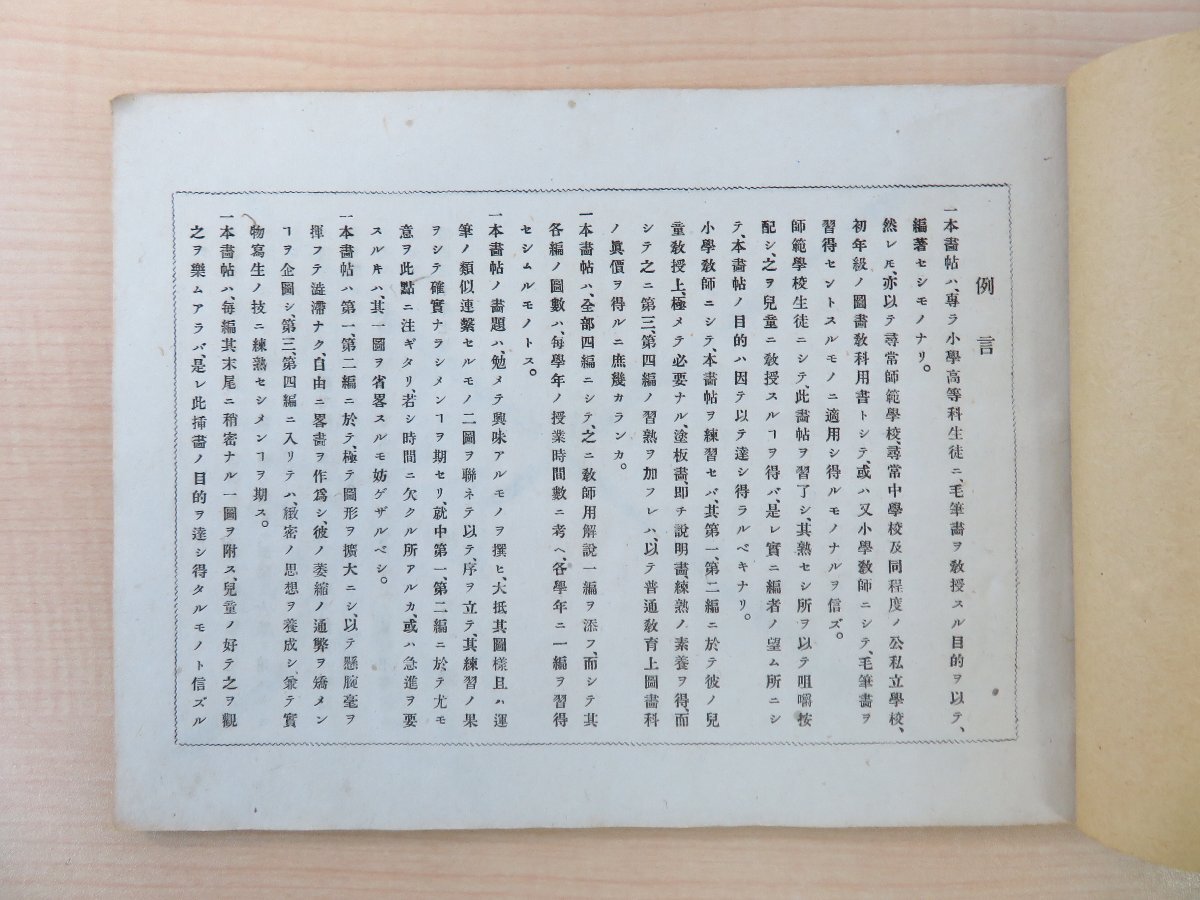 例言
一本畵帖ハ、專ラ小學高等科生徒ニ、毛筆畵ヲ敎授スル目的ヲ以テ、
編著セシモノナリ。
然レㇳモ、亦以テ尋常師範學校、尋常中學校及同程度ノ公私立學校、
初年級ノ圖畵敎科用書トシテ、或ハ又小學敎師ニシテ、毛筆畵ヲ
習得セントスルモノニ適用シ得ルモノナルヲ信ズ。
師範學校生徒ニシテ、此畵帖ヲ習了シ、其熟セシ所ヲ以テ咀嚼按
配シ、之ヲ兒童ニ敎授スルヿヲ得バ、是レ實ニ編者ノ望ム所ニシ
テ、本畵帖ノ目的ハ因テ以テ達シ得ラルベキナリ。
小學敎師ニシテ、本畵帖ヲ練習セバ、其第一、第二編ニ於テ彼ノ兒
童敎授上、極メテ必要ナル、塗板畵、即チ說明畵、練熟ノ素養ヲ得、而
シテ之ニ第三、第四編ノ習熟ヲ加フレハ、以テ普通敎育上圖畵科
ノ眞價ヲ得ルニ庶幾カランカ。
一本畵帖ハ、全部四編ニシテ、之ニ敎師用解說一編ヲ添フ、而シテ其
各編ノ圖數ハ、每學年ノ授業時間數ニ考ヘ、各學年ニ一編ヲ習得
セシムルモノトス。
一本畵帖ノ畵題ハ勉メテ興味アルモノヲ撰ヒ、大抵其圖樣且ハ運
筆ノ類似連繫セルモノ二圖ヲ聯ネテ以テ、序ヲ立テ、其練習ノ果
ヲシテ確實ナラシメンヿヲ期セリ、就中第一、第二編ニ於テ尤モ
意ヲ此點ニ注ギタリ、若シ時間ニ欠クル所アルカ、或ハ急進ヲ要
スルキハ、其一圖ヲ省畧スルモ妨ゲザルベシ。
一本畵帖ハ第一、第二編ニ於テ、極テ圖形ヲ擴大ニシ、以テ懸腕毫ヲ
揮フテ澁滯ナク、自由ニ畧畵ヲ作爲シ、彼ノ萎縮ノ通弊ヲ矯メン
ヿヲ企圖シ、第三、第四編ニ入リテハ、緻密ノ思想ヲ養成シ、兼テ實
物寫生ノ技ニ練熟セシメンヿヲ期ス。
一本畵帖ハ、每編其末尾ニ稍密ナル一圖ヲ附ス、兒童ノ好テ之ヲ觀
之ヲ樂ムアラバ、是レ此揷畵ノ目的ヲ達シ得タルモノト信ズル